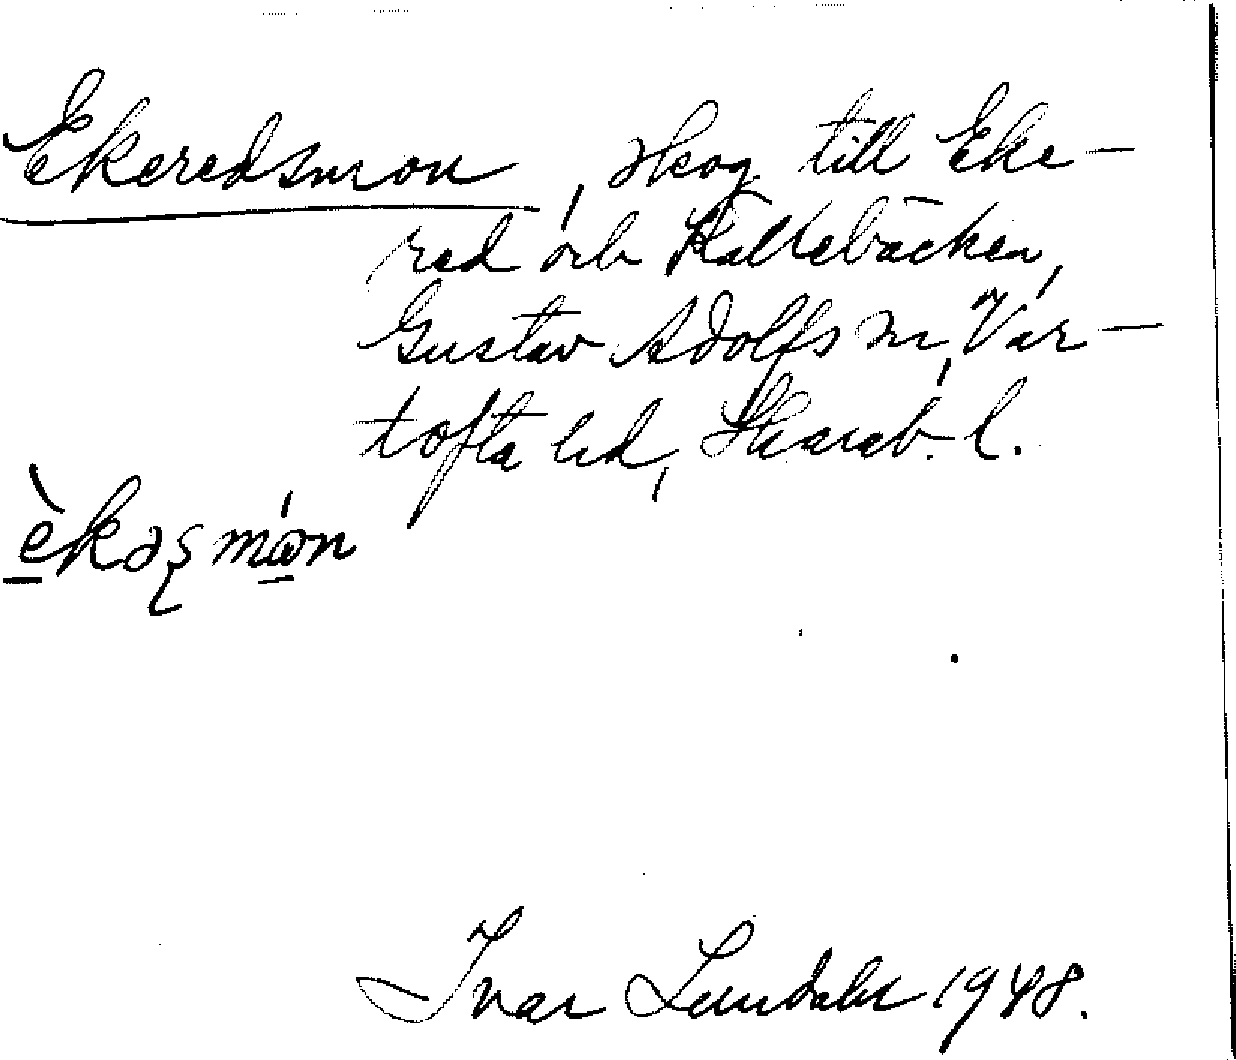 Ekeredsmon, skog till Eke-
red och Källebäcken,
Gustav Adolfs sn, Var-
tofta hd, Skarab. l.
èkəʂmón
Ivar Lundahl 1948.